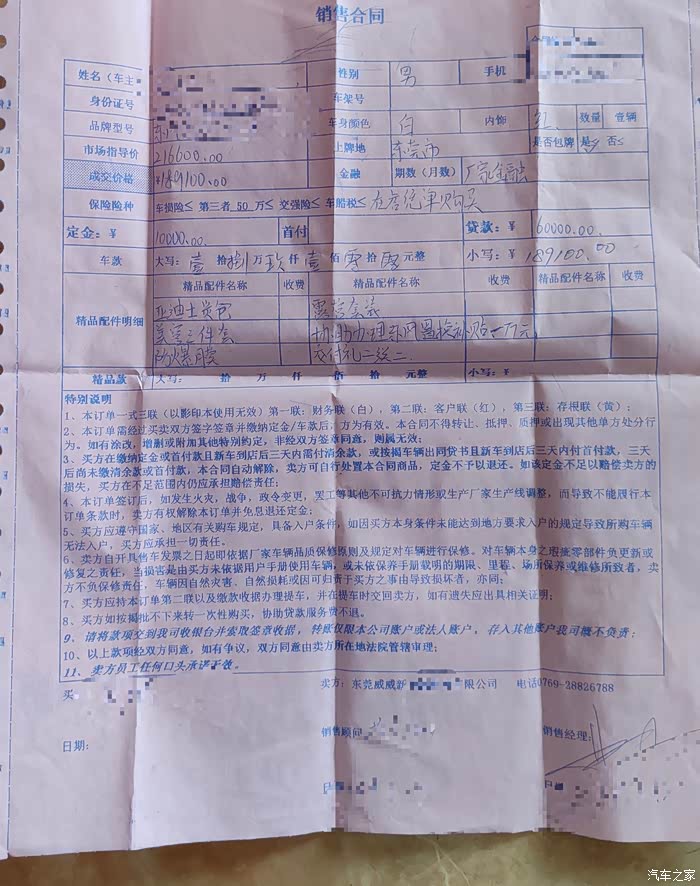 销售合同
姓名(车主 性别 男 手机
身份证号 车架号
品牌型号 车身颜色 白 内饰 红 数量 壹辆
市场指导价 216600.00 上牌地 东莞市 是否包牌 是 否≤
成交价格 ¥189100.00 金融 期数(月数) 厂家金融
保险险种 车损险≤ 第三者 50 万≤ 交强险≤ 车船税≤ 在店统筹购买
定金:¥ 10000.00 首付 贷款:¥ 60000.00
车款 大写:壹 拾 捌 万 玖 仟 壹 佰 零 拾 零 元整 小写:¥ 189100.00
精品配件名称 收费 精品配件名称 收费 精品配件名称 收费
精品配件明细
迪士尼
盖三件套
防爆膜 交付礼二送二
精品款 大写: 拾 万 仟 佰 拾 元整 小写:¥
特别说明
1、本订单一式三联(以影印本使用无效)第一联:财务联(白),第二联:客户联(红),第三联:存根联(黄);
2、本订单需经过买卖双方签字签章并缴纳定金/车款后;方为有效。本合同不得转让、抵押、质押或出现其他单方处分行
为。如有涂改,增删或附加其他特别约定,非经双方签章同意,则属无效;
3、买方在缴纳定金或首付款且新车到店后三天内需付清余款,或按揭车辆出同贷书且新车到店后三天内付首付款,三天
后尚未缴清余款或首付款,本合同自动解除,卖方可自行处置本合同商品,定金不予以退还。如该定金不足以赔偿卖方的
损失,买方在不足范围内仍应承担赔偿责任;
4、本订单签订后,如发生火灾,战争,政令变更,罢工等其他不可抗力情形或生产厂家生产线调整,而导致不能履行本
订单条款时,卖方有权解除本订单并免息退还定金;
5、买方应遵守国家、地区有关购车规定,具备入户条件,如因买方本身条件未能达到地方要求入户的规定导致所购车辆
无法入户,买方应承担一切责任。
6、卖方自开具售车发票之日起即依据厂家车辆品质保修原则及规定对车辆进行保修。对车辆本身之瑕疵零部件负更新或
修复之责任,当损害是由买方未依据用户手册使用车辆,或未依保养手册载明的期限、里程、场所保养或维修所致者,卖
方不负保修责任,车辆因自然灾害、自然损耗或因可归责于买方之事由导致损坏者,亦同;
7、买方应持本订单第二联以及缴款收据办理提车,并在提车时交回卖方,如有遗失应出具相关证明;
8、买方如按揭批不下来转一次性购买,协助贷款服务费不退。
9、请将款项交到我司收银台并索取签章收据,转账仅限本公司账户或法人账户,存入其他账户我司概不负责;
10、以上款项经双方同意,如有争议,双方同意由卖方所在地法院管辖审理;
11、卖方员工任何口头承诺无效。
买 卖方:东莞威威新 有限公司 电话0769-28826788
日期: 销售顾问 销售经理:
日期 日期
汽车之家